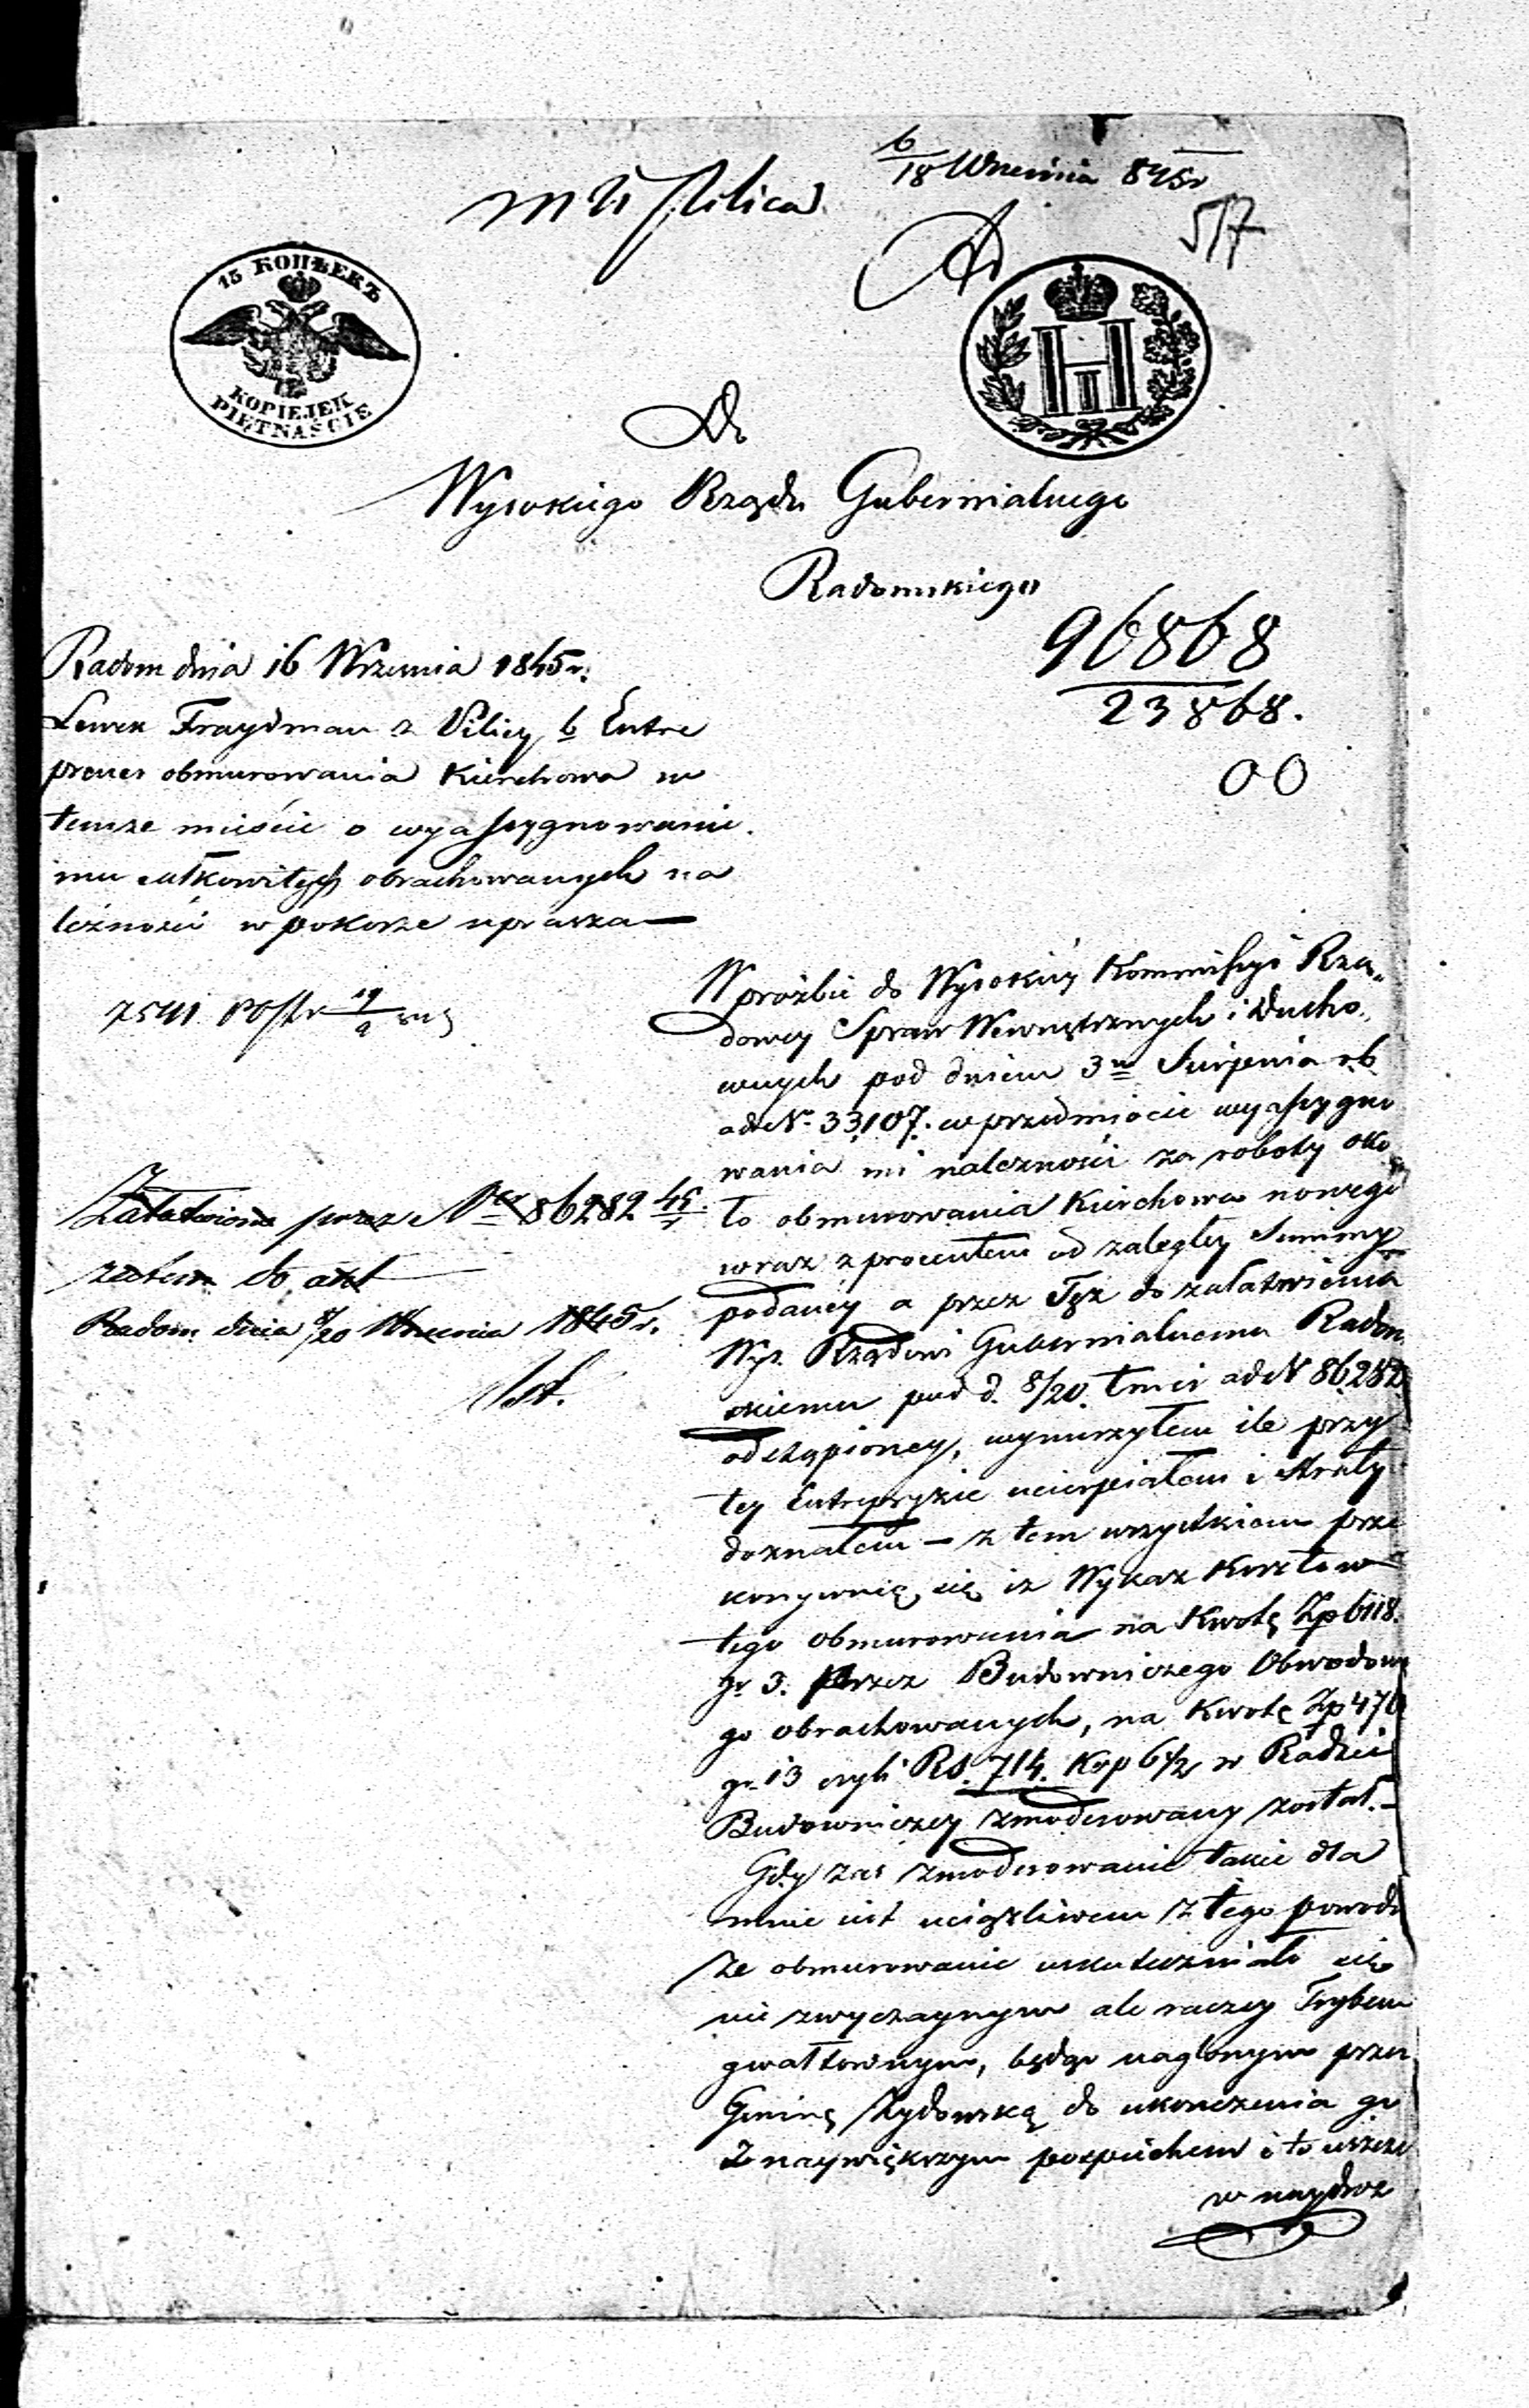 6/18 Września 845r
M. Pilica
517
15 КОПѢЕКЪ
KOPIEJEK
PIĘTNAŚCIE
Do
Wysokiego Rządu Gubernialnego
Radomskiego
96868
23868.
00
Radom dnia 16 Września 1845 r.
Lewek Fraydman z Pilicy b Entre
prener obmurowania Kierchowa w
temże mieście o wyassygnowanie
mu całkowitych obrachowanych na
leżność w pokorze uprasza —
7541
Załatwione przez Ner 86282 45
zatem do akt
Radom dnia 8/20 Września 1845 r.
W prożbie do Wysokiéy Kommissyi Rzą„
dowey Spraw Wewnętrznych i Ducho„
wnych pod dniem 3m Sierpnia r.b.
ad N. 33,107. w przedmiocie wyassygno
wania mi należności za roboty oko„
ło obmurowania Kierchowa nowego
wraz z procentem od zaległey Summy
podanéy a przez Tęż do załatwienia
Wys. Rządowi Gubernialnemu Radom
skiemu pod d. 8/20. tmir ad N 86,282.
odstąpioney, wynurzyłem ile przy
tey Entrepryzie ucierpiałem i straty
doznałem — z tem wszystkiem prze
konywuię się iż Wykaz Kosztow
tego obmurowania na Kwotę Zp 6118.
gr 3. Przez Budowniczego Obwodowe
go obrachowanych, na Kwotę Zp 476
gr. 13 czyli Rs. 714. Kop 6 1/2 w Radzie
Budowniczey zmoderowany został. —
Gdy zas zmoderowanie takie dla
mnie iest uciążliwem z tego powodu
że obmurowanie uskuteczniało się
nie zwyczaynym ale raczey Trybem
gwałtownym, będąc naglonym przez
Gminę Żydowską do ukonczenia go
z naywiększym pospiechem i to ieszcze
w naydroż